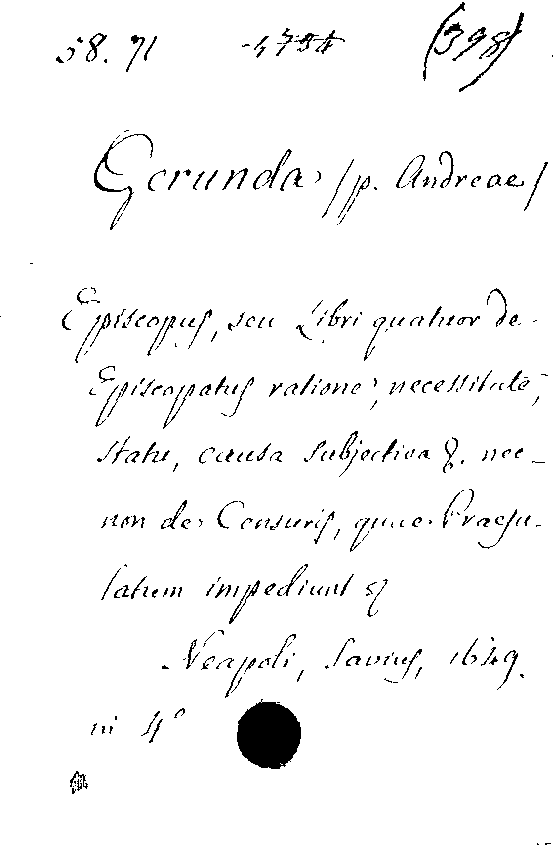 58. 71 4734 (398)
Gerunda /p. Andreae/
Episcopus, seu Libri quatuor de
Episcopatus ratione, necessitate,
statu, causa subjectiva &. nec-
non de Censuris, quae Praesu-
latum impediunt &
Neapoli, Savius, 1649.
in 4°